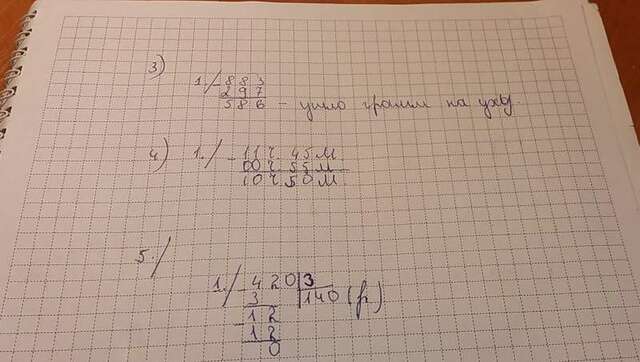 3)
1./ - 883
297
586 - ушло грамм на уху
4) 1./ - 11ч 45м
00ч 55м
10ч 50м
5./
1./ - 420 3
3 140 (р)
- 12
12
0